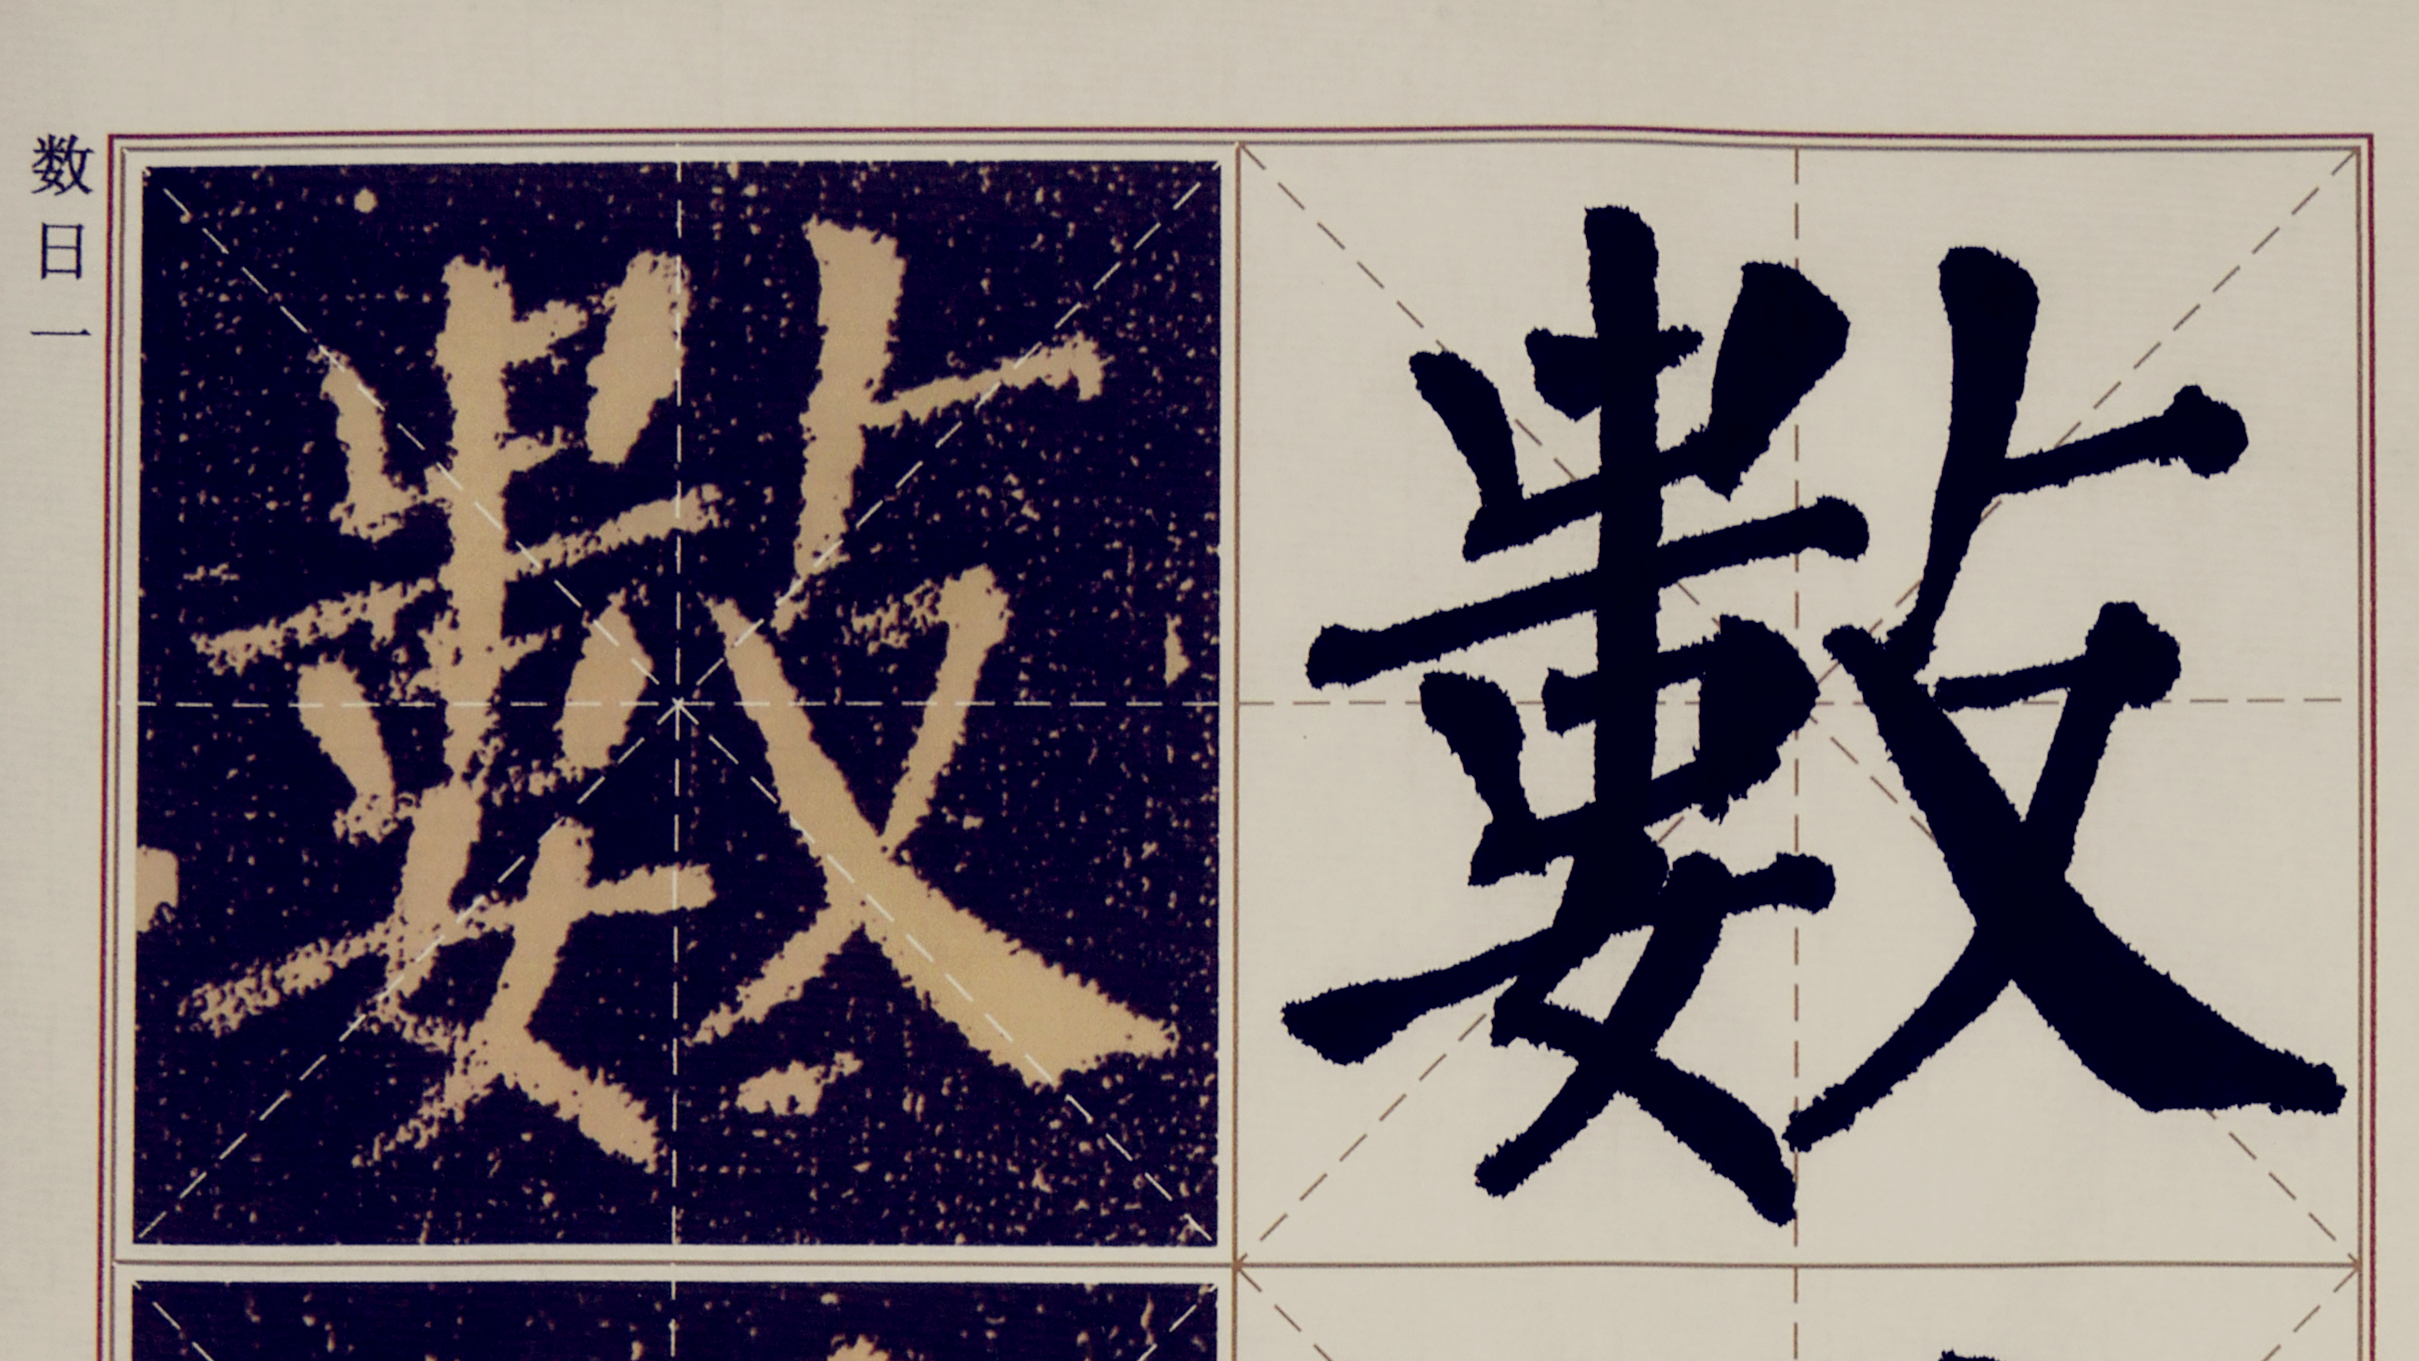 数日一
數
數